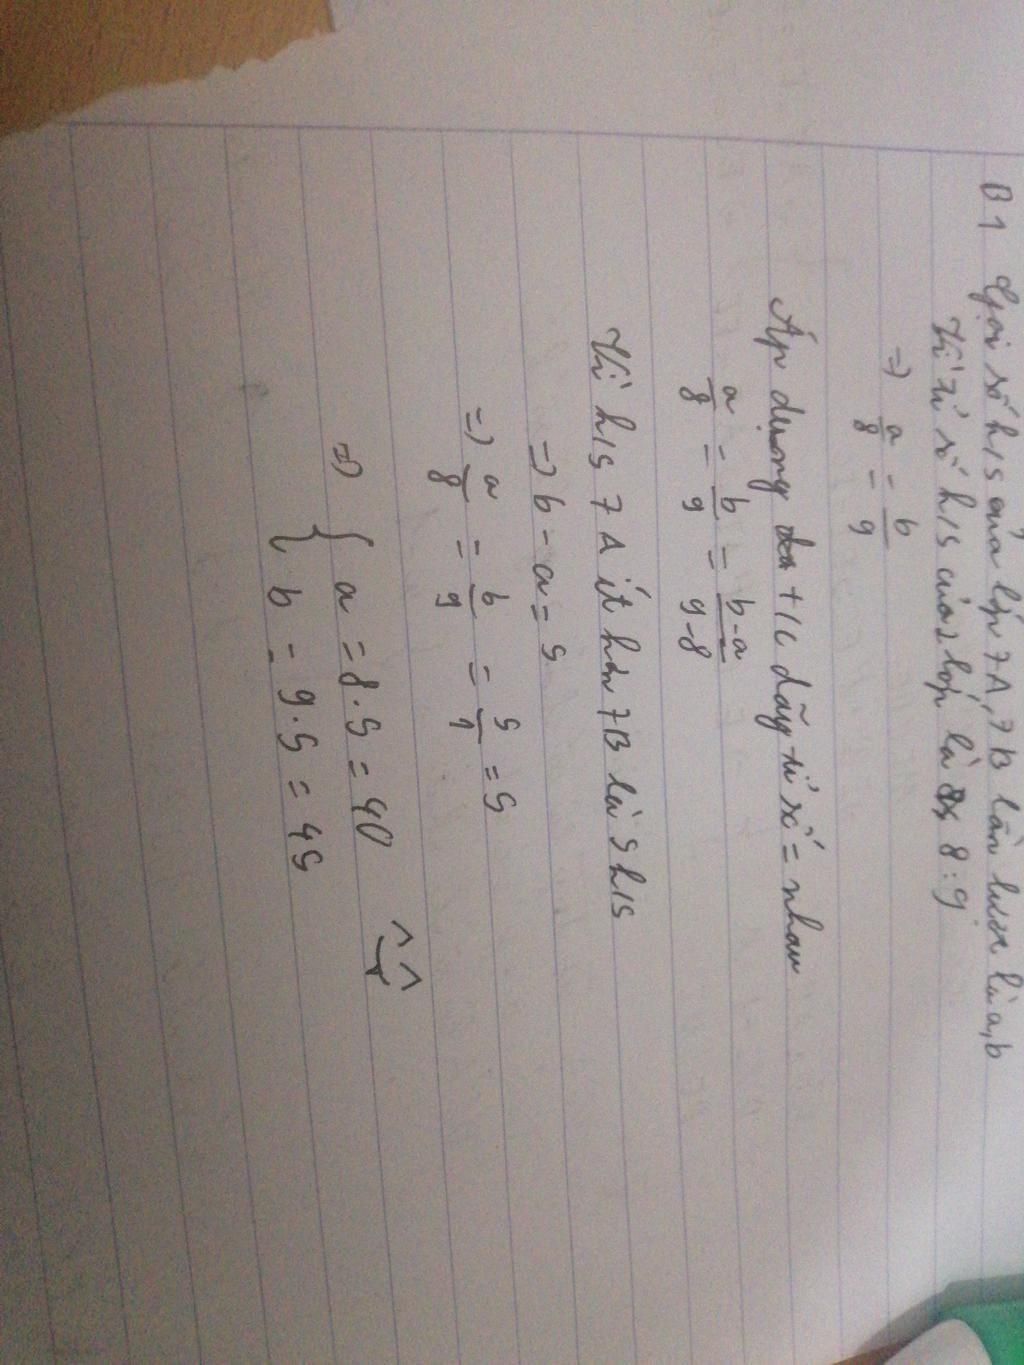 B1 Gọi số h/s của lớp 7A, 7B lần lượt là a, b
Vì tỉ số h/s của 2 lớp là 8 : 9
=> a/8 = b/9
Áp dụng t/c dãy tỉ số = nhau
a/8 = b/9 = b-a/9-8
Vì h/s 7A ít hơn 7B là 5 h/s
=> b - a = 5
=> a/8 = b/9 = 5/1 = 5
=> { a = 8.5 = 40
{ b = 9.5 = 45